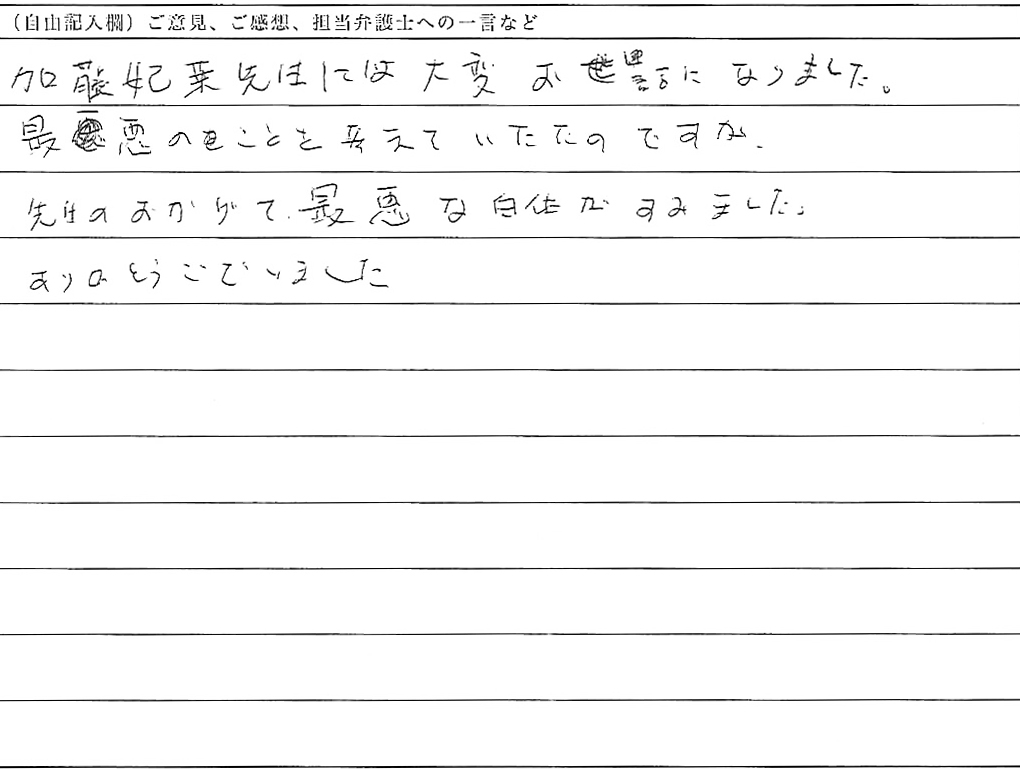 (自由記入欄)ご意見、ご感想、担当弁護士への一言など
加藤妃菜先生には大変お世話になりました。
最悪のことを考えていたたのですが、
先生のおかげで、最悪な自体がすみました。
ありがとうございました